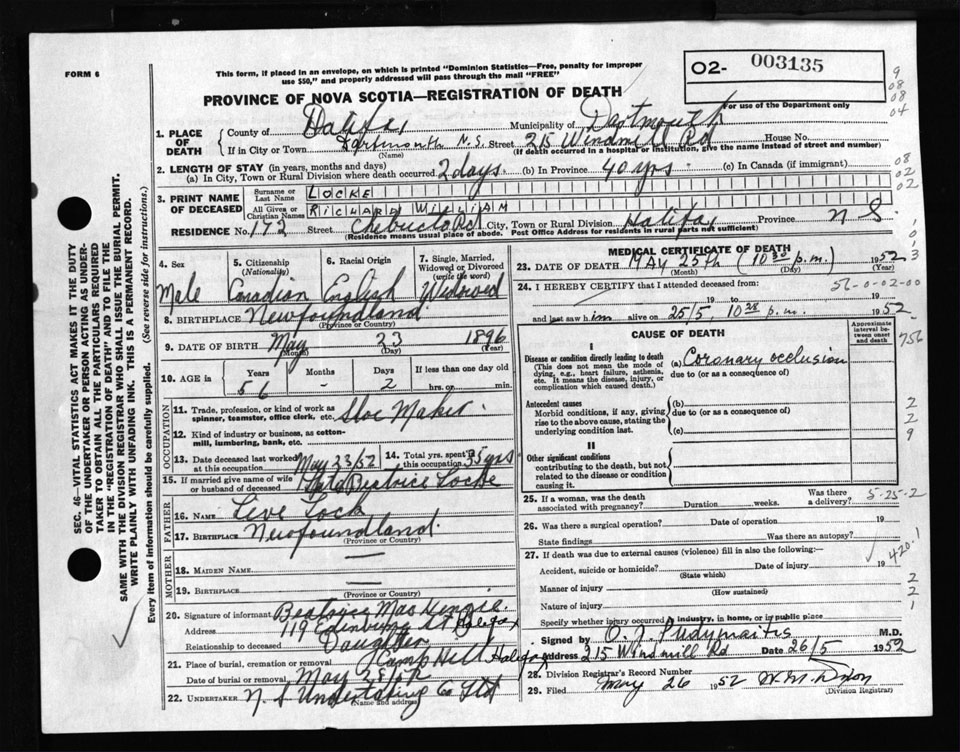 FORM 6
This form, if placed in an envelope, on which is printed "Dominion Statistics—Free, penalty for improper
use $50," and properly addressed will pass through the mail "FREE"
O2- 003135
For use of the Department only
PROVINCE OF NOVA SCOTIA—REGISTRATION OF DEATH
1. PLACE OF DEATH
County of Halifax Municipality of Dartmouth
If in City or Town Dartmouth N.S. Street 215 Windmill Rd House No.
(Name) (If death occurred in a hospital or institution, give the name instead of street and number)
2. LENGTH OF STAY (in years, months and days)
(a) In City, Town or Rural Division where death occurred 2 days (b) In Province 40 yrs (c) In Canada (if immigrant)
3. PRINT NAME OF DECEASED
Surname or Last Name LOCKE
All Given or Christian Names RICHARD WILLIAM
RESIDENCE No. 172 Street Chebucto Rd City, Town or Rural Division Halifax Province N S.
(Residence means usual place of abode. Post Office Address for residents in rural parts not sufficient)
4. Sex Male
5. Citizenship (Nationality) Canadian
6. Racial Origin English
7. Single, Married, Widowed or Divorced (write the word) Widowed
8. BIRTHPLACE Newfoundland
(Province or Country)
9. DATE OF BIRTH May 23 1896
(Month) (Day) (Year)
10. AGE in Years Months Days If less than one day old
56 - 2 hrs. or min.
OCCUPATION
11. Trade, profession, or kind of work as
spinner, teamster, office clerk, etc. Shoe Maker.
12. Kind of industry or business, as cotton-
mill, lumbering, bank, etc.
13. Date deceased last worked at this occupation May 23/52
14. Total yrs. spent in this occupation 35 yrs
15. If married give name of wife
or husband of deceased Late Beatrice Locke
FATHER
16. NAME
17. BIRTHPLACE Newfoundland.
(Province or Country)
MOTHER
18. MAIDEN NAME —
19. BIRTHPLACE —
(Province or Country)
20. Signature of informant Beatrice MacKenzie.
Address 119 Edinburg St Halifax
Relationship to deceased Daughter
21. Place of burial, cremation or removal Camp Hill Halifax
Date of burial or removal May 28/52
22. UNDERTAKER N. S Undertaking Co Ltd
(Name and address)
MEDICAL CERTIFICATE OF DEATH
23. DATE OF DEATH MAY 25th (10 30 p.m.) 1952
(Month) (Day) (Year)
24. I HEREBY CERTIFY that I attended deceased from:
19 to 19
and last saw him alive on 25/5, 10 28 p.m. 1952
CAUSE OF DEATH
Approximate interval between onset and death
I
Disease or condition directly leading to death
(This does not mean the mode of
dying, e.g., heart failure, asthenia,
etc. It means the disease, injury, or
complication which caused death.)
(a) Coronary occlusion
due to (or as a consequence of)
Antecedent causes
Morbid conditions, if any, giving
rise to the above cause, stating the
underlying condition last.
(b)
due to (or as a consequence of)
(c)
II
Other significant conditions
contributing to the death, but not
related to the disease or condition
causing it.
25. If a woman, was the death
associated with pregnancy? Duration weeks. Was there a delivery?
26. Was there a surgical operation? Date of operation 19
State findings Was there an autopsy?
27. If death was due to external causes (violence) fill in also the following:
Accident, suicide or homicide? Date of injury 19
(State which)
Manner of injury
(How sustained)
Nature of injury
Specify whether injury occurred in industry, in home, or in public place
Signed by M.D.
Address 215 Windmill Rd Date 26/5 1952
28. Division Registrar's Record Number
29. Filed May 26 1952
(Division Registrar)
SEC. 46—VITAL STATISTICS ACT MAKES IT THE DUTY
OF THE UNDERTAKER OR PERSON ACTING AS UNDER-
TAKER TO OBTAIN ALL THE PARTICULARS REQUIRED
IN THE "REGISTRATION OF DEATH" AND TO FILE THE
SAME WITH THE DIVISION REGISTRAR WHO SHALL ISSUE THE BURIAL PERMIT.
WRITE PLAINLY WITH UNFADING INK. THIS IS A PERMANENT RECORD.
Every item of information should be carefully supplied. (See reverse side for instructions.)
9
08
08
04
08
02
02
56-0-02-00
756
2
2
9
5-25-2
420.1
2
2
1